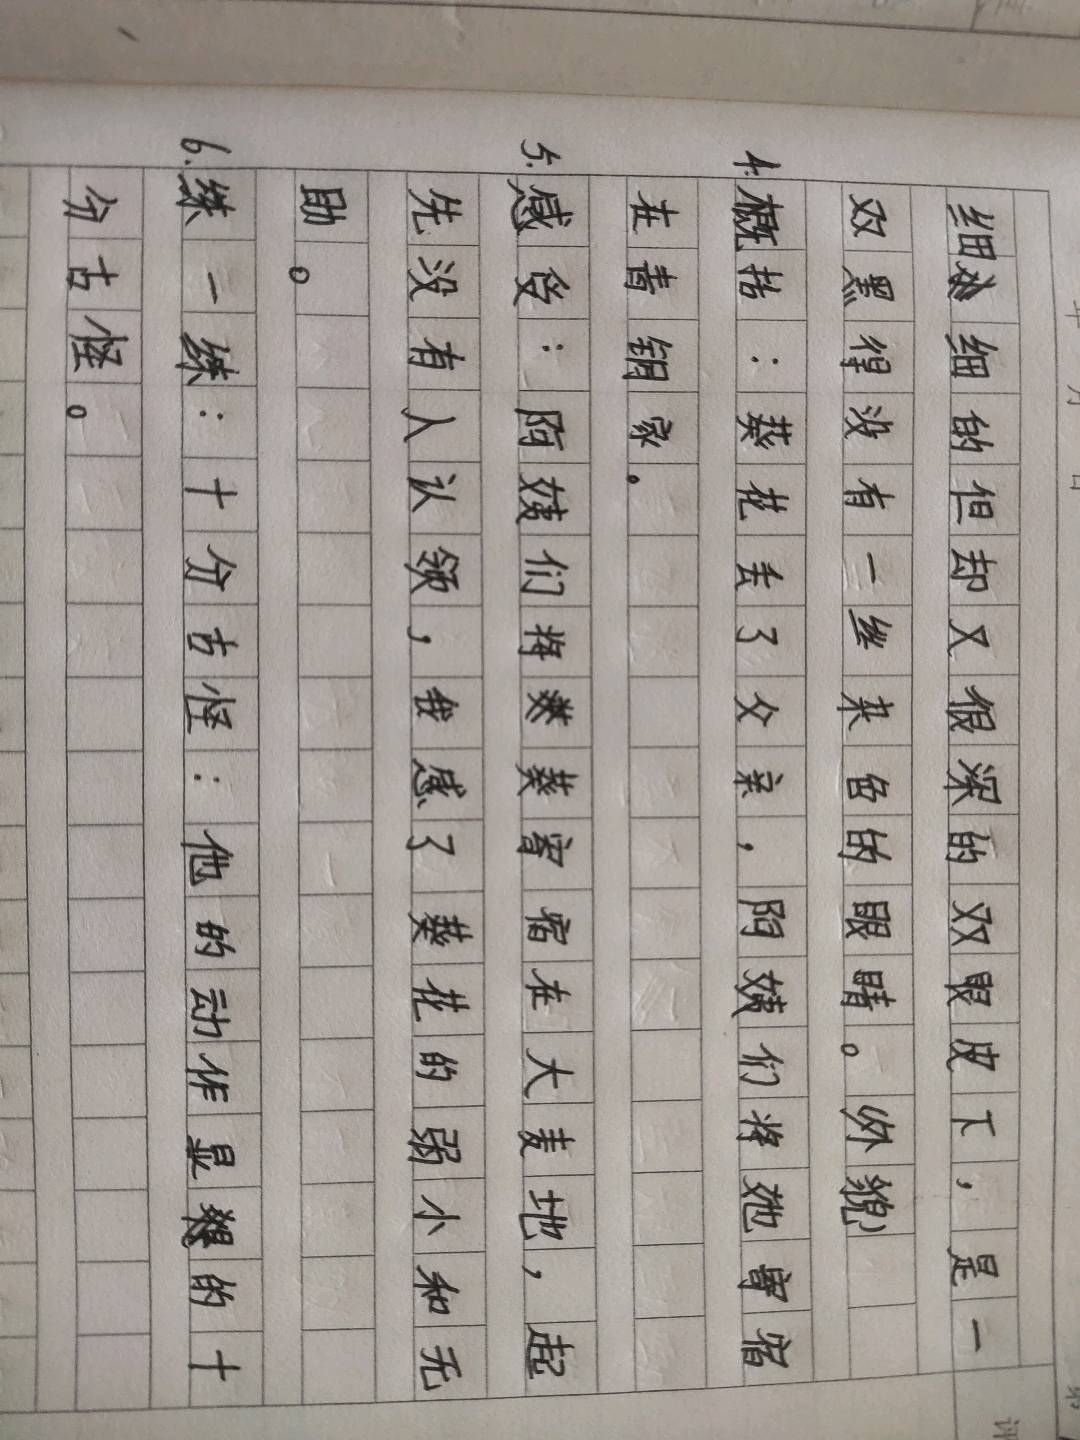 年 月 日
细细的但却又很深的双眼皮下，是一
双黑得没有一丝杂色的眼睛。（外貌）
4.概括：葵花丢了父亲，阿姨们将她寄宿
在青铜家。
5.感受：阿姨们将葵寄宿在大麦地，起
先没有人认领，我感了葵花的弱小和无
助。
6.练一练：十分古怪：他的动作显得的十
分古怪。